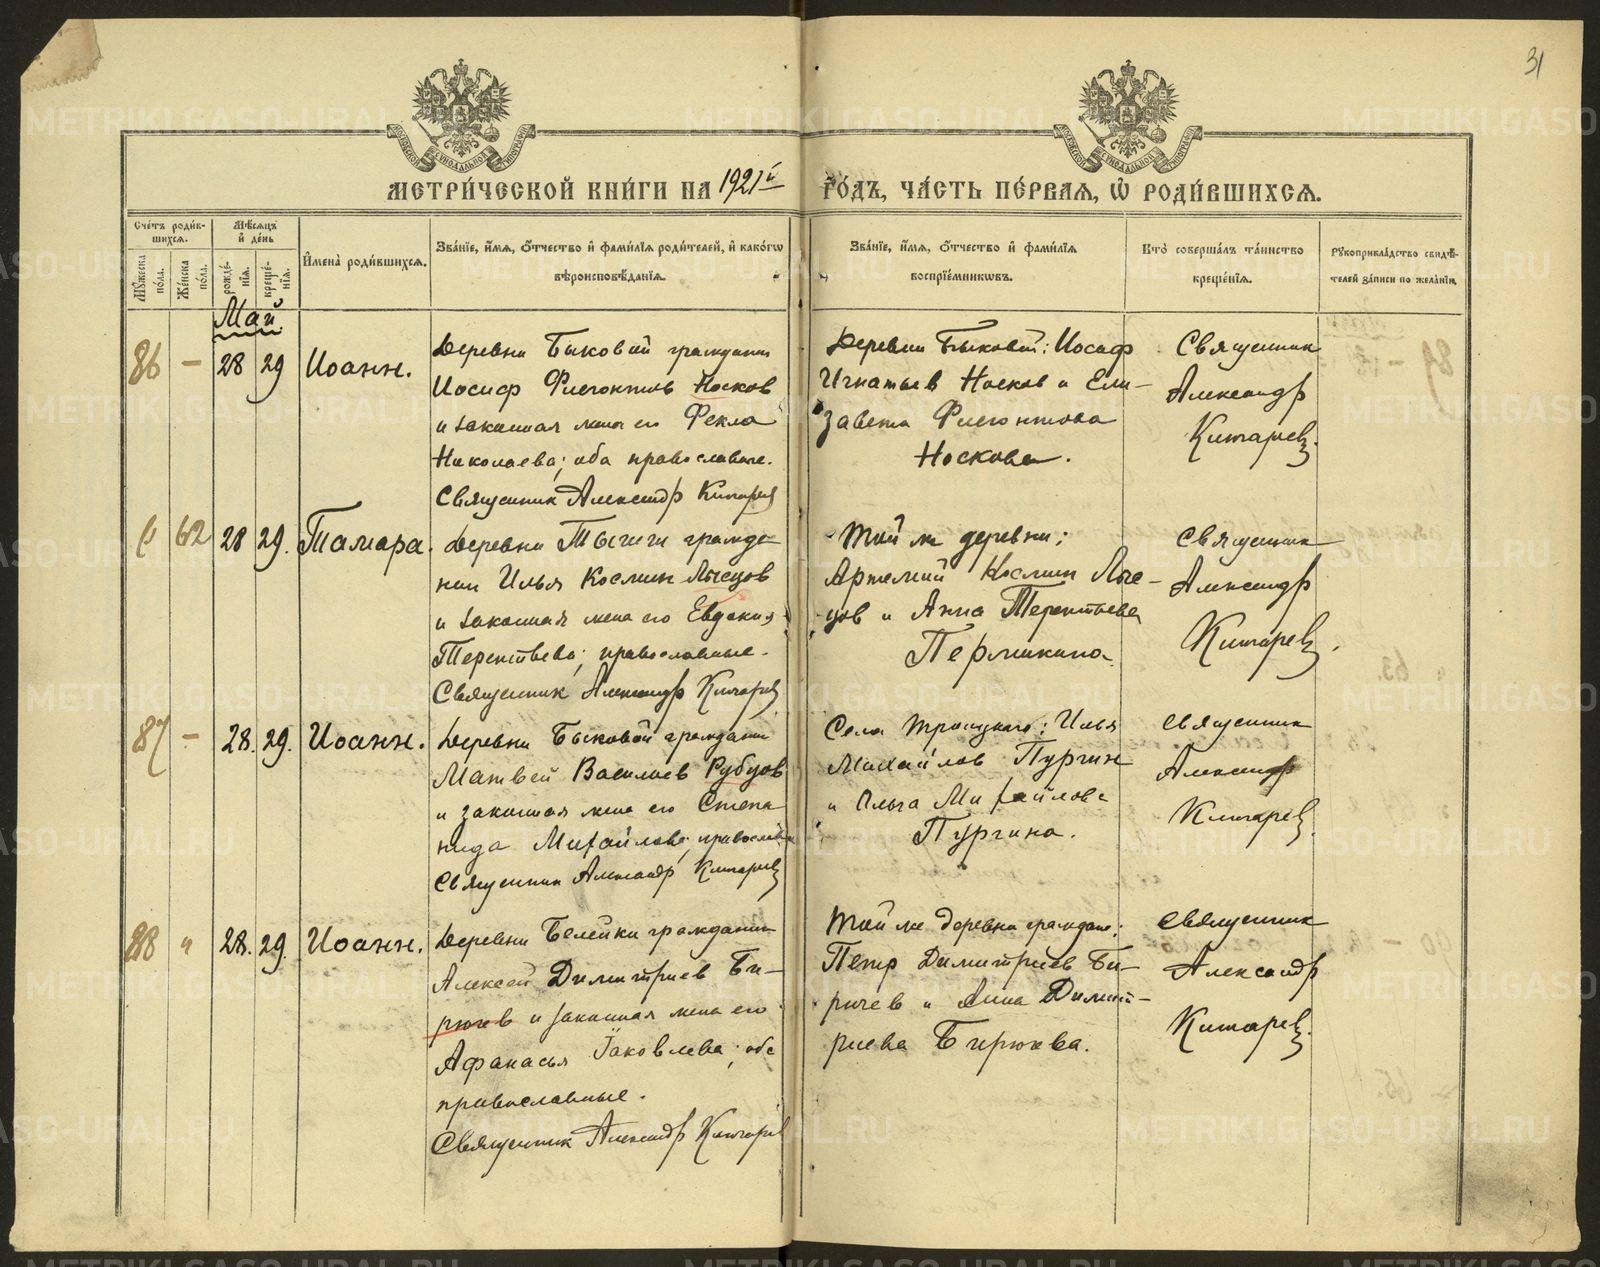 31
МЕТРИ́ЧЕСКОЙ КНИ́ГИ НА 1921й ГО́ДЪ, ЧА́СТЬ ПЕ́РВАЯ, Ѡ҆ РОДИ́ВШИХСЯ.
Сче́тъ роди́в-
шихся.
Мꙋ́жеска по́ла.
Же́нска по́ла.
Мѣ́сяцъ
и҆ де́нь
рожде́-
нїя.
креще́-
нїя.
И҆мена̀ роди́вшихся.
Зва́нїе, и҆́мя, ѻ҆́тчество и҆ фами́лїя роди́телей, и҆ како́гѡ
вѣроисповѣ́данїя.
Зва́нїе, и҆́мя, ѻ҆́тчество и҆ фами́лїя
воспрїе́мникѡвъ.
Кто̀ соверша́лъ та́инство
креще́нїя.
Рꙋкоприкла́дство свидѣ́-
телей за́писи по жела́нїю.
Май.
86 – 28 29 Иоанн.
Деревни Быковой гражданин
Иосиф Флегонтов Носков
и законная жена его Фекла
Николаева; оба православные.
Священник Александр Китарев
Деревни Быковой: Иосиф
Игнатьев Носков и Ели-
завета Флегонтова
Носкова.
Священник
Александр
Китарев.
62 28 29. Тамара.
Деревни гражда-
нин Илья Космин Лысцов
и законная жена его Евдокия
Терентьева; православные.
Священник Александр Китарев
Той же деревни;
Артемий Космин Лыс-
цов и Анна Терентьева
Пермикина
Священник
Александр
Китарев.
87 – 28. 29. Иоанн.
Деревни Быковой гражданин
Матвей Васильев Рубцов
и законная жена его Степа
нида Михайлова; православн
Священник Александр Китарев
Села Троицкого: Илья
Михайлов Пургин
и Ольга Михайлова
Пургина.
Священник
Александр
Китарев.
88 " 28. 29. Иоанн.
Деревни Белейки гражданин
Алексей Димитриев Би-
рючев и законная жена его
Афанасья Iаковлева; оба
православные.
Священник Александр Китарев
Той же деревни граждане:
Петр Димитриев Би-
рючев и Анна Димит-
риева Бирюкова.
Священник
Александр
Китарев.
METRIKI.GASO-URAL.RU